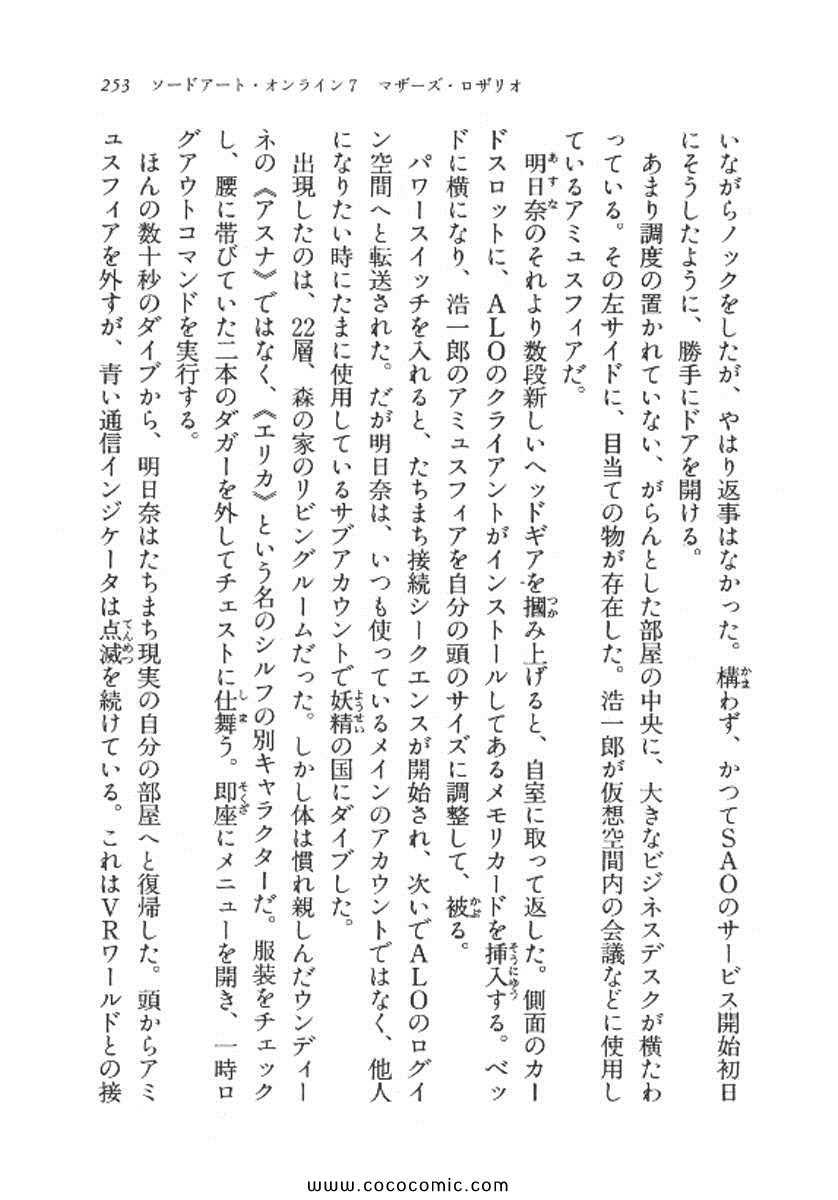 253　ソードアート・オンライン7　マザーズ・ロザリオ
いながらノックをしたが、やはり返事はなかった。構わず、かつてSAOのサービス開始初日
にそうしたように、勝手にドアを開ける。
　あまり調度の置かれていない、がらんとした部屋の中央に、大きなビジネスデスクが横たわ
っている。その左サイドに、目当ての物が存在した。浩一郎が仮想空間内の会議などに使用し
ているアミュスフィアだ。
　明日奈のそれより数段新しいヘッドギアを摑み上げると、自室に取って返した。側面のカー
ドスロットに、ALOのクライアントがインストールしてあるメモリカードを挿入する。ベッ
ドに横になり、浩一郎のアミュスフィアを自分の頭のサイズに調整して、被る。
　パワースイッチを入れると、たちまち接続シークエンスが開始され、次いでALOのログイ
ン空間へと転送された。だが明日奈は、いつも使っているメインのアカウントではなく、他人
になりたい時にたまに使用しているサブアカウントで妖精の国にダイブした。
　出現したのは、22層、森の家のリビングルームだった。しかし体は慣れ親しんだウンディー
ネの《アスナ》ではなく、《エリカ》という名のシルフの別キャラクターだ。服装をチェック
し、腰に帯びていた二本のダガーを外してチェストに仕舞う。即座にメニューを開き、一時ロ
グアウトコマンドを実行する。
　ほんの数十秒のダイブから、明日奈はたちまち現実の自分の部屋へと復帰した。頭からアミ
ュスフィアを外すが、青い通信インジケータは点滅を続けている。これはVRワールドとの接
www.cococomic.com